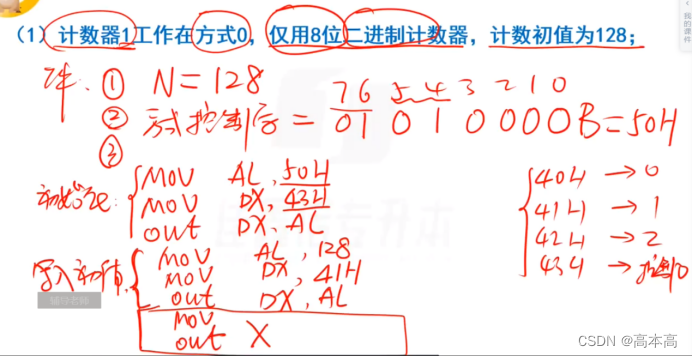 我的课件
(1) 计数器1工作在方式0，仅用8位二进制计数器，计数初值为128；
① N=128
7 6 5 4 3 2 1 0
② 方式控制字 = 01 0 1 0000B=50H
③
初始化: MOV AL, 50H
MOV DX, 43H
out DX, AL
写入初值: MOV AL, 128
MOV DX, 41H
out DX, AL
MOV
out X
40H → 0
41H → 1
42H → 2
43H → 控制口
辅导老师
CSDN @高本高